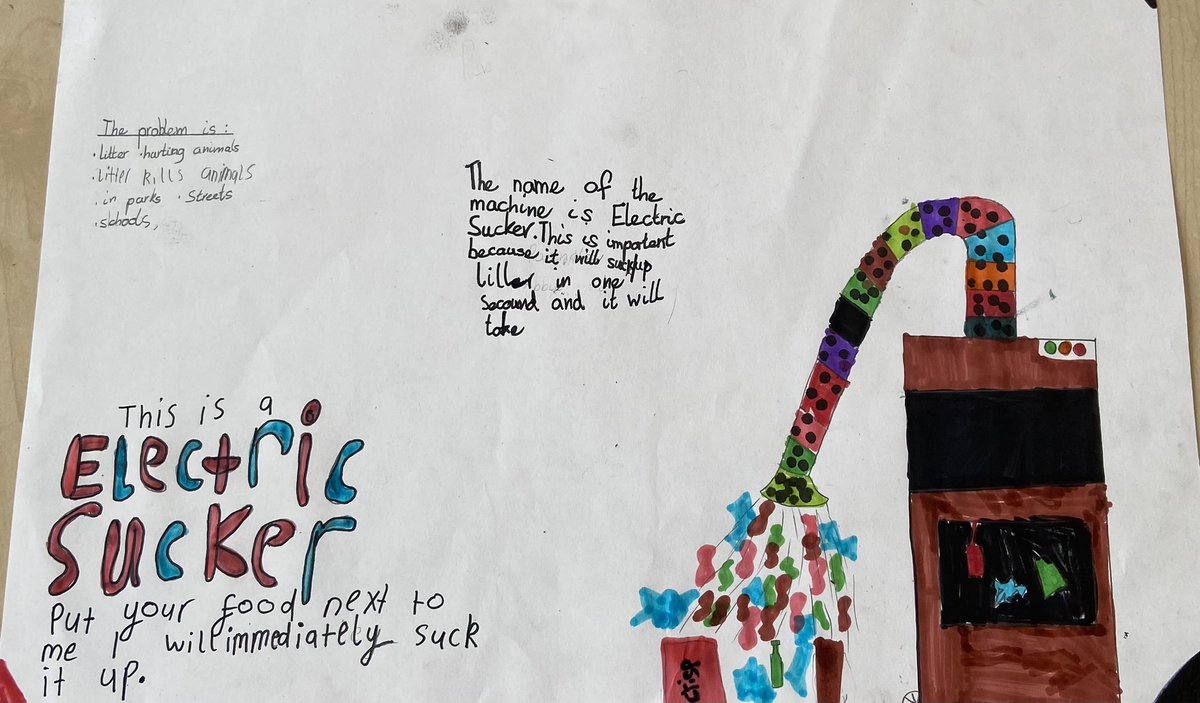 The problem is:
• litter • hurting animals
• litter kills animals
• in parks • Streets
• schools,
The name of the
machine is Electric
Sucker. This is important
because it will suck up
litter in one
secound and it will
take
This is a
Electric
Sucker
Put your food next to
me I will immediately suck
it up.
crisp